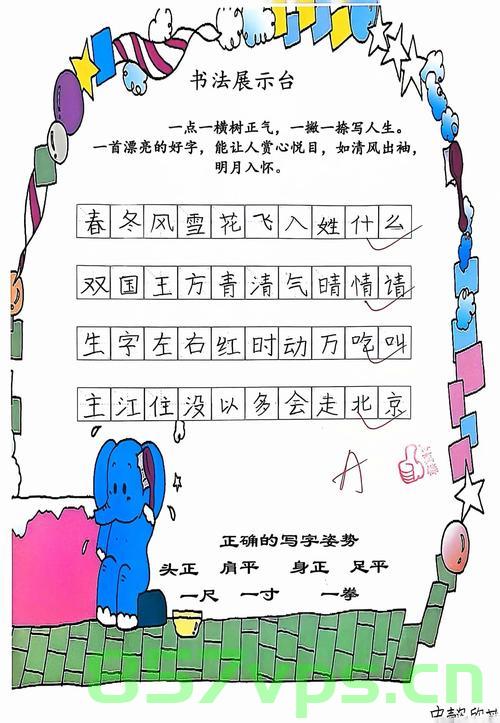 书法展示台
一点一横树正气，一撇一捺写人生。
一首漂亮的好字，能让人赏心悦目，如清风出袖，
明月入怀。
春冬风雪花飞入姓什么
双国王方青清气晴情请
生字左右红时动万吃叫
主江住没以多会走北京
A
正确的写字姿势
头正 肩平 身正 足平
一尺 一寸 一拳
657vps.cn